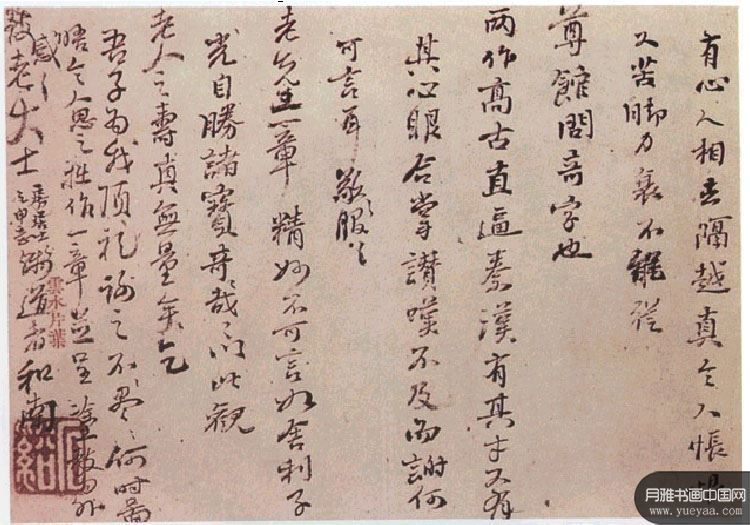 有心人相去隔越真令人悵
又苦腳力衰不能從
尊館問奇字也
兩作高古直逼秦漢有其才又有
其心眼合掌讚嘆不及而謝何
可言耶敬服敬服
老先生一章精妙不可言如舍利子
光自勝諸寶奇哉奇哉閱此觀
老人之壽真無量矣乞
吾子為我頂禮謝之不盡不盡何時圖
晤令人思之拙作一章並呈教
感感
老大士 道者和南
雲水片葉
月雅书画中国网
www.yueyaa.com